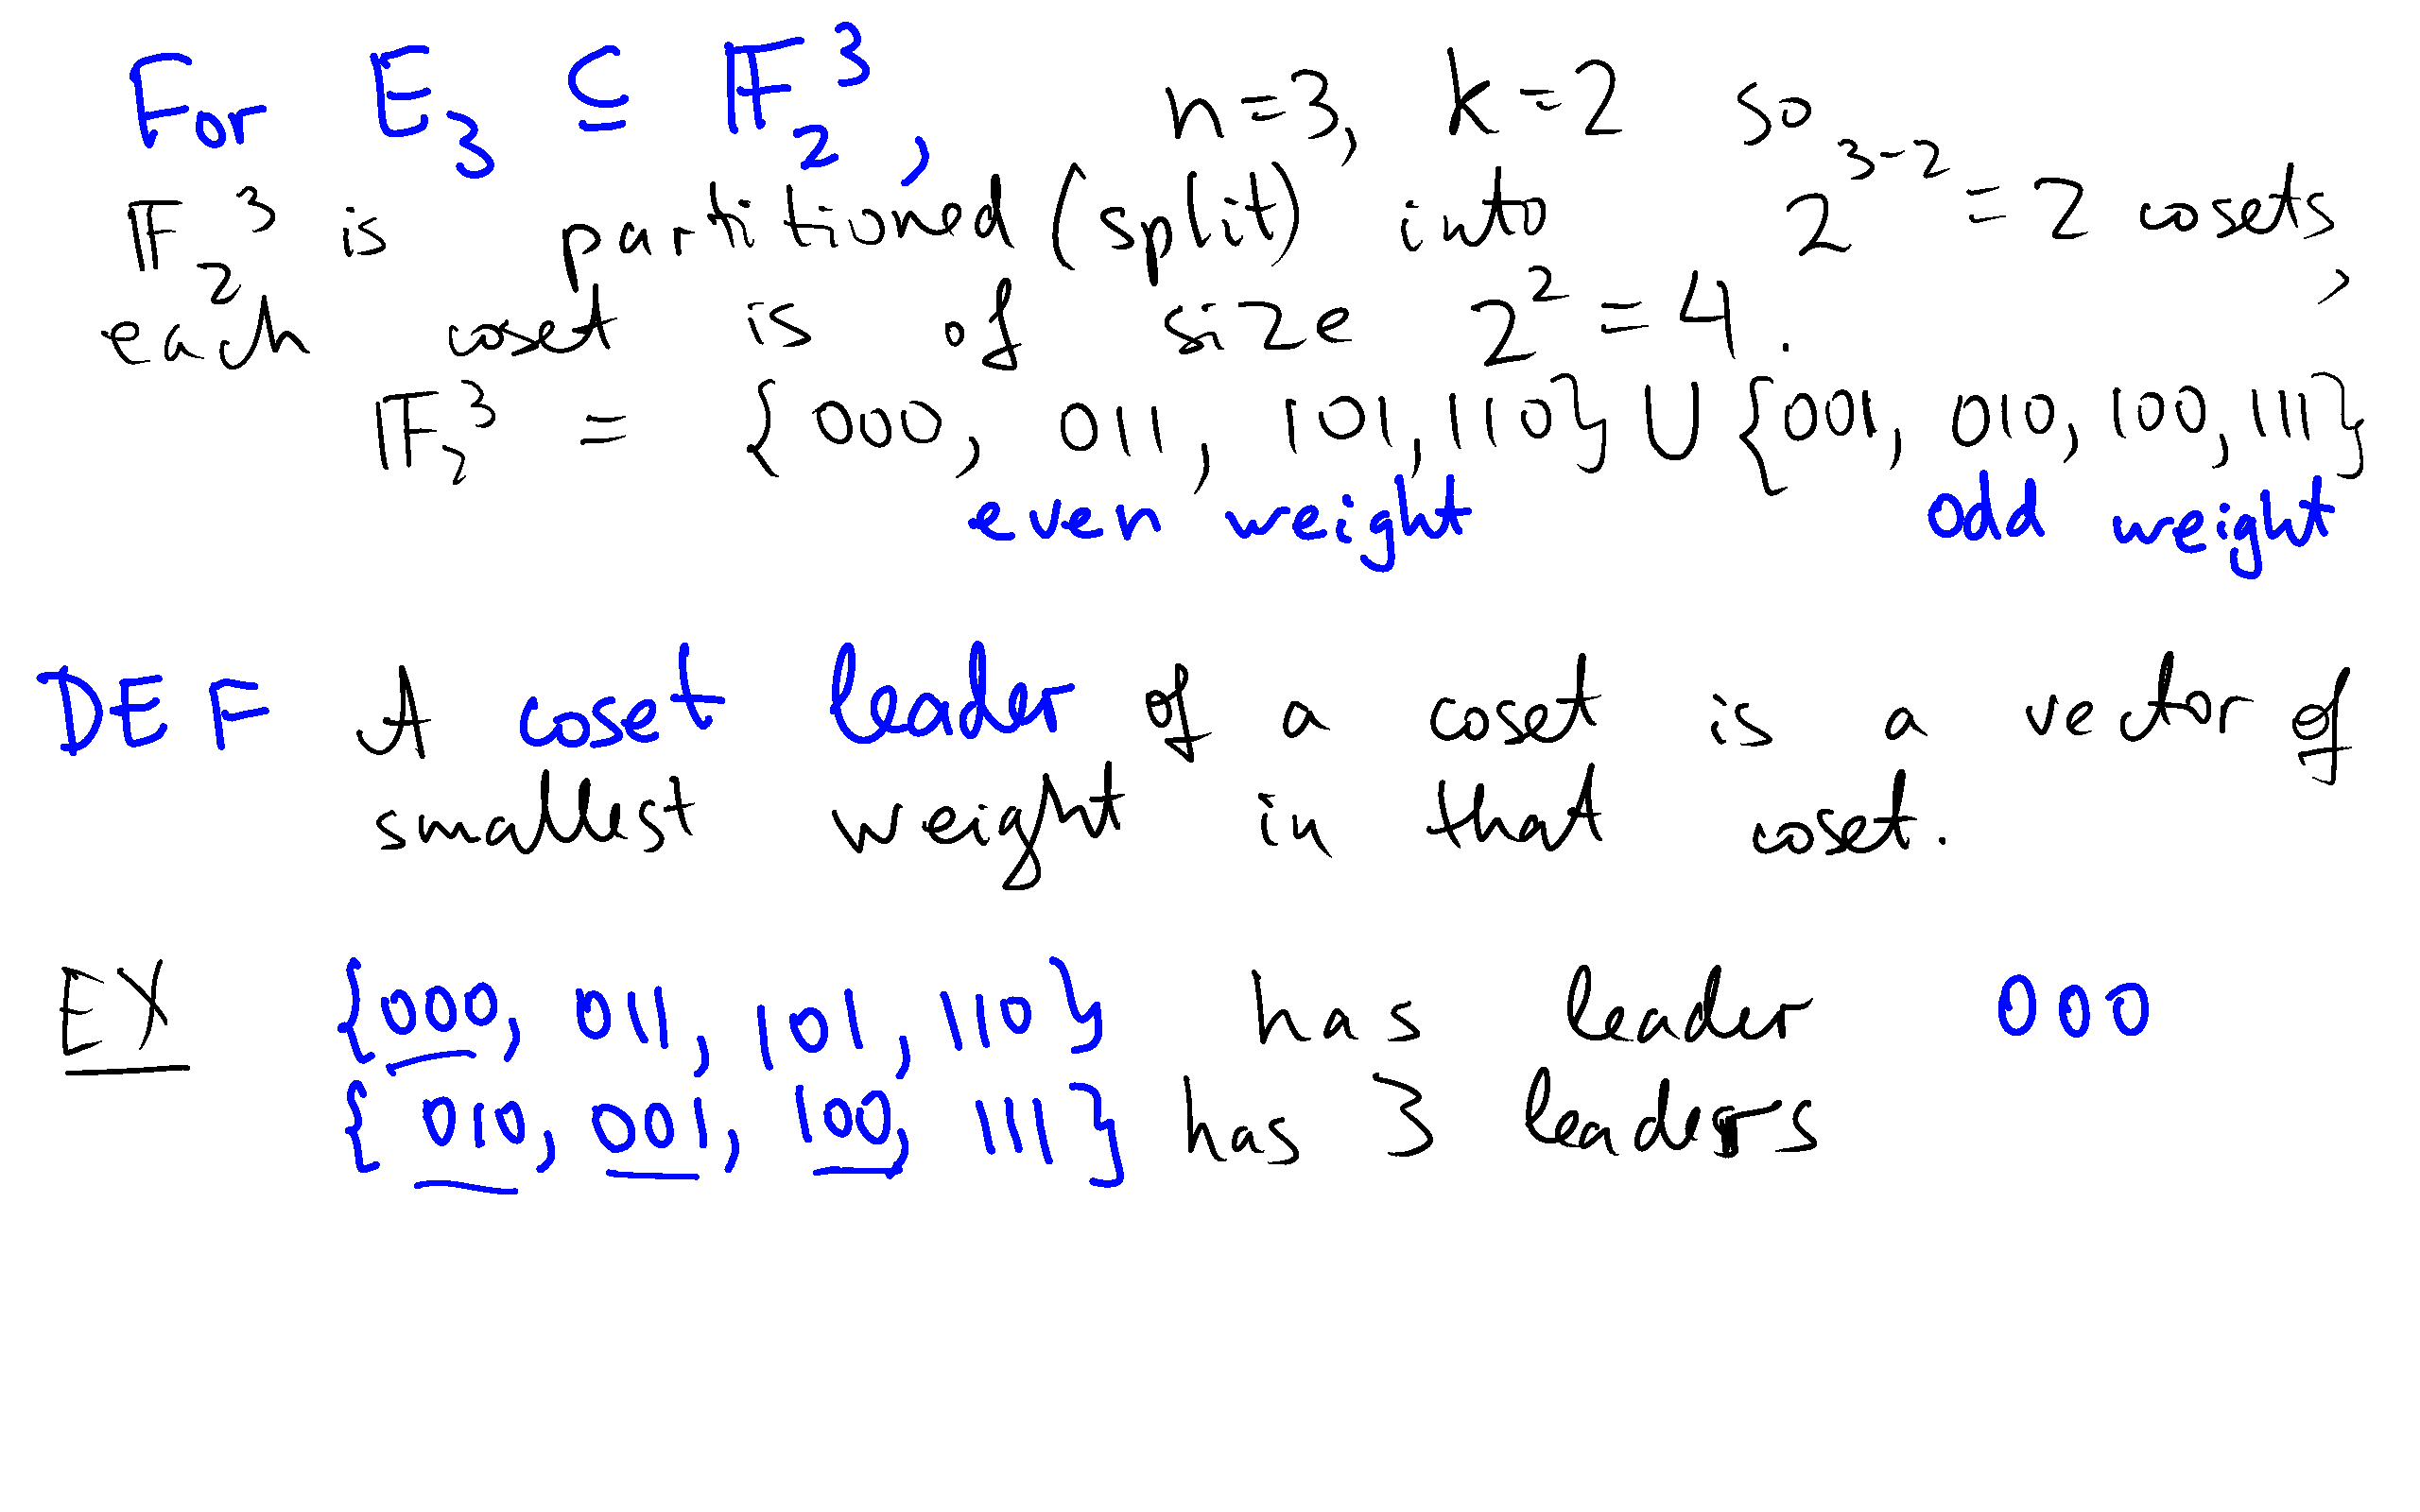 For E₃ ⊆ 𝔽₂³, n=3, k=2 so
𝔽₂³ is partitioned (split) into 2³⁻² = 2 cosets,
each coset is of size 2² = 4.
𝔽₂³ = {000, 011, 101, 110} ∪ {001, 010, 100, 111}
even weight odd weight
DEF A coset leader of a coset is a vector of
smallest weight in that coset.
EX {000, 011, 101, 110} has leader 000
{010, 001, 100, 111} has 3 leaders